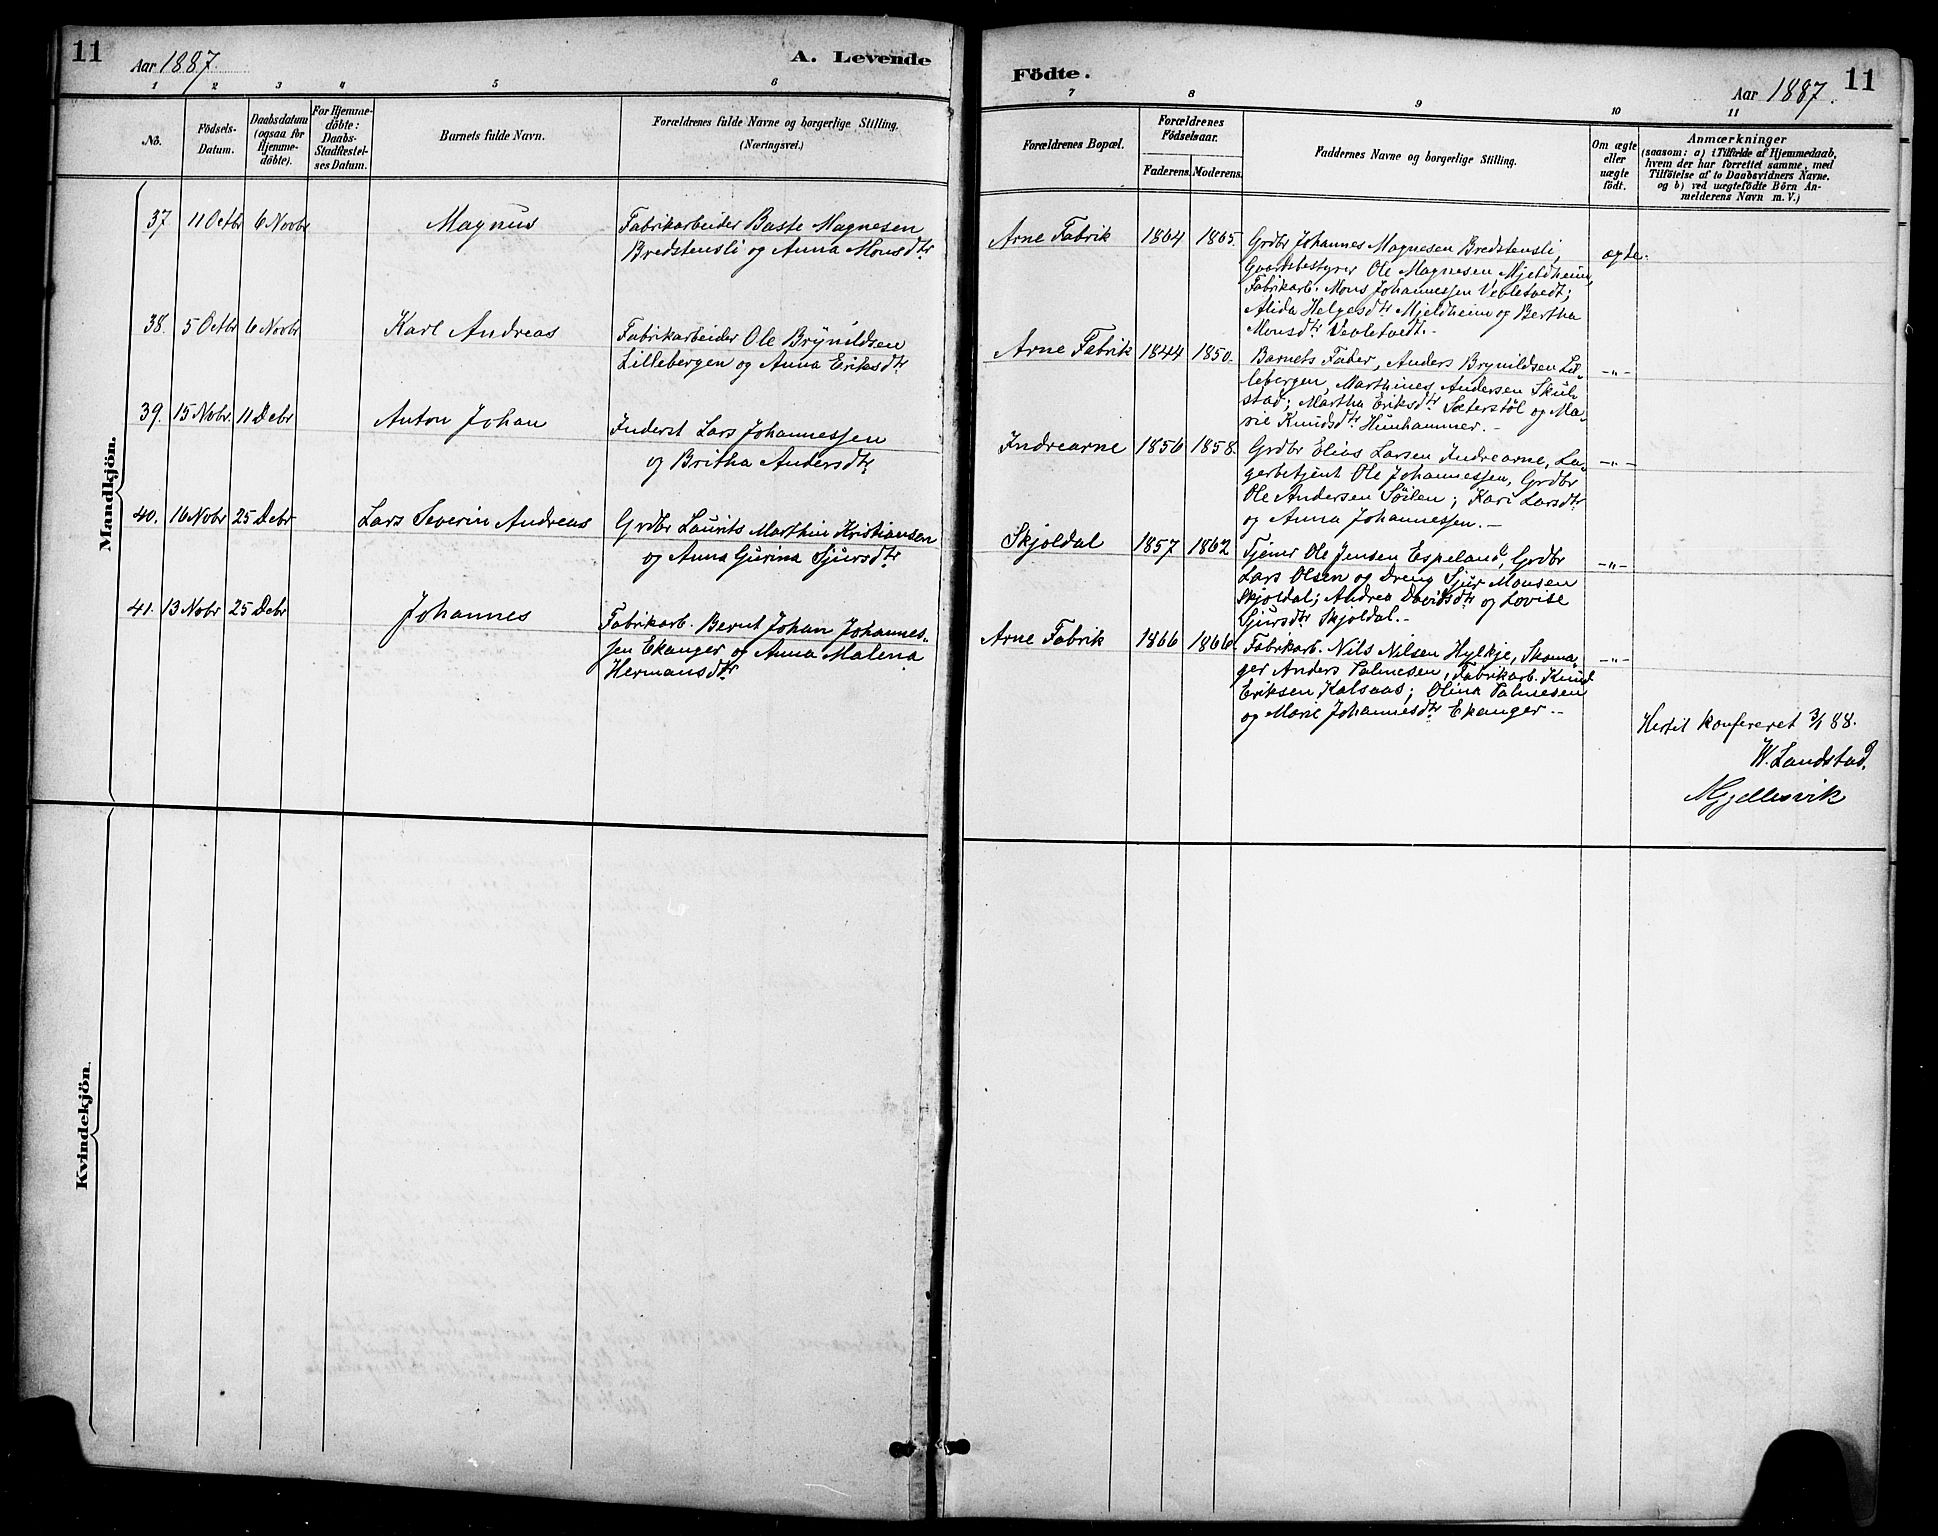 11
Aar 1887.
A. Levende
1 2 3 4 5 6
No.
Födsels-
Datum.
Daabsdatum
(ogsaa for
Hjemme-
döbte).
For Hjemme-
döbte:
Daabs-
Stadfæstel-
ses Datum.
Barnets fulde Navn.
Forældrenes fulde Navne og borgerlige Stilling.
(Næringsvei.)
Mandkjön.
37. 11 Octbr 6 Novbr Magnus Fabrikarbeider Baste Magnesen
Bredstensli og Anna Monsdtr
38. 5 Octbr 6 Novbr Karl Andreas Fabrikarbeider Ole Brynildsen
Lillebergen og Anna Eriksdtr
39. 15 Novbr. 11 Debr Anton Johan Inderst Lars Johannessen
og Britha Andersdtr
40. 16 Nobr 25 Debr Lars Severin Andreas Grdbr Laurits Marthin Kristiansen
og Anna Gurina Sjursdtr
41. 13 Nobr 25 Debr Johannes Fabrikarb. Bernt Johan Johannes-
sen Ekanger og Anna Malena
Hermansdtr
Kvindekjön.
Födte.
Aar 1887.
11
7 8 9 10 11
Forældrenes Bopæl.
Forældrenes
Födselsaar.
Faderens. Moderens.
Faddernes Navne og borgerlige Stilling.
Om ægte
eller
uægte
födt.
Anmærkninger
(saasom: a) i Tilfælde af Hjemmedaab,
hvem der har forrettet samme, med
Tilföielse af to Daabsvidners Navne.
og b) ved uægtefödte Börn An-
melderens Navn m. V.)
Arne Fabrik 1864 1865. Grdbr Johannes Magnesen Bredstensli, ægte.
Gaardsbestyrer Ole Magnesen Mjeldheim,
Fabrikarb. Mons Johannessen Vevletvedt;
Alida Helgesdtr Mjeldheim og Bertha
Monsdtr Vevletvedt.-
Arne Fabrik 1844 1850. Barnets Fader, Anders Brynildsen Lil- -"-
lebergen, Marthines Andersen Skul-
stad; Martha Eriksdtr Sæterstøl og Ma-
rie Knudsdtr Hunhammer.-
Indrearne 1856 1858. Grdbr Elias Larsen Indrearne, La- -"-
gerbetjent Ole Johannessen, Grdbr
Ole Andersen Søilen; Kari Larsdtr
og Anna Johannessen.-
Skjoldal 1857 1862 Tjener Ole Jensen Espeland, Grdbr -"-
Lars Olsen og Dreng Sjur Monsen
Skjoldal; Andrea Davidsdtr og Lovise
Sjursdtr Skjoldal.-
Arne Fabrik 1866 1866. Fabrikarb. Nils Nilsen Hylkje, Skoma- -"-
ger Anders Palmesen, Fabrikarb. Knud
Eriksen Kalsaas; Olina Palmesen
og Marie Johannesdtr Ekanger.-
Hertil konfereret 3/1 88.
W. Landstad.